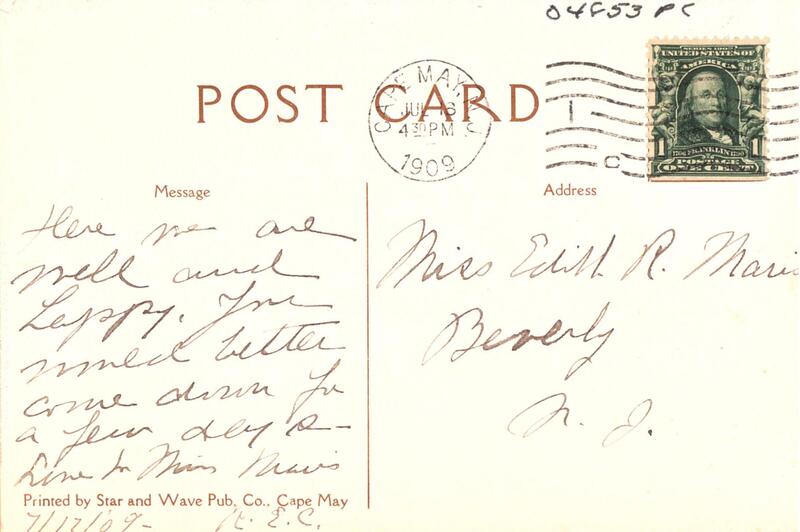 04853 PC
POST CARD
CAPE MAY, N.J.
JUL 16
4 30 PM
1909
1
C
SERIES 1902
UNITED STATES OF
AMERICA
1706 FRANKLIN 1790
1 POSTAGE 1
ONE CENT
Message
Address
Here we are
well and
happy. You
better
come down for
a few days –
Love to Miss Maris
Miss Edith R. Maris
Beverly
N. J.
Printed by Star and Wave Pub. Co., Cape May
7/17/09- H. E. C.